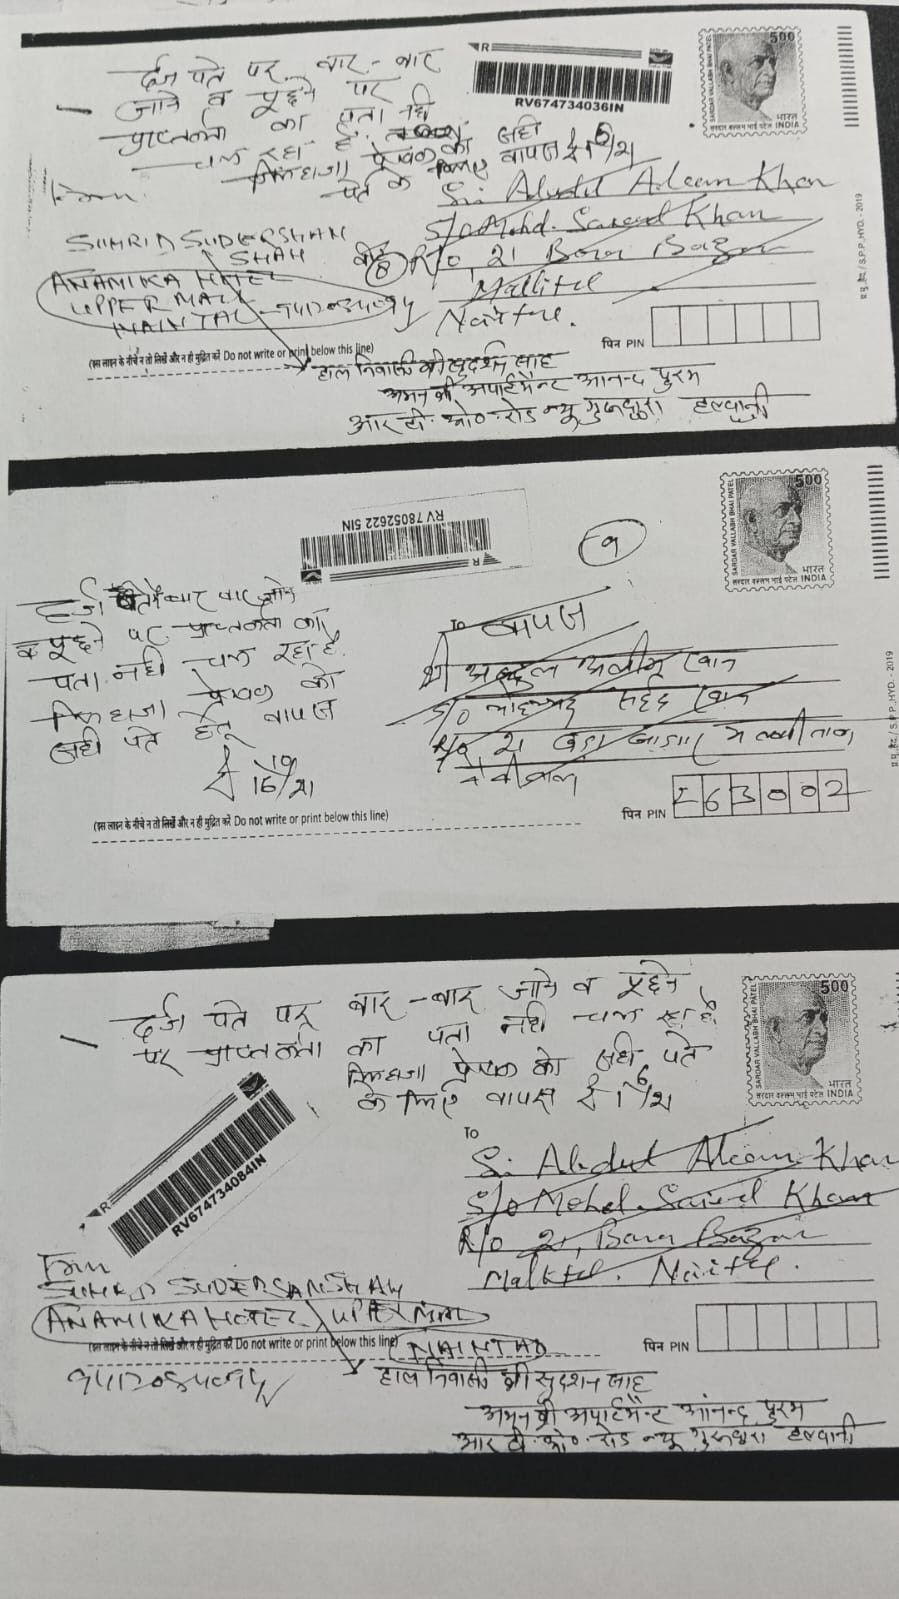 दर्ज पते पर बार-बार
जाने व पूछने पर
प्राप्तकर्ता का पता नही
चल रहा है.
लिहाजा प्रेषक को सही
पते के लिए वापस
R
RV674734036IN
500
SARDAR VALLABH BHAI PATEL
भारत
सरदार वल्लभ भाई पटेल INDIA
From.
SUHRID SUDERSHAN
SHAH
ANAMIKA HOTEL
UPPER MALL
NAINITAL
Sri Abdul Aleem Khan
S/o Mohd. Saeed Khan
R/o, 21 Bara Bazar
Mallital
पिन PIN
S.P.P. HYD. - 2019
(इस लाइन के नीचे न तो लिखें और न ही मुद्रित करें Do not write or print below this line)
हाल निवासी श्री सुदर्शन साह
अमन श्री अपार्टमैन्ट आनन्द पुरम
आर टी. ओ० रोड न्यू हल्द्वानी
RV 78052622 5IN
R
9
500
SARDAR VALLABH BHAI PATEL
भारत
सरदार वल्लभ भाई पटेल INDIA
दर्ज पते में बार बार जाने
व पूछने पर प्राप्तकर्ता का
पता नही चल रहा है.
लिहाजा प्रेषक को
सही पते हेतु वापस
To
वापस
श्री अब्दुल अलीम खान
S/o मोहम्मद सईद खान
R/o 21 बड़ा बाजार मल्लीताल
नैनीताल
पिन PIN 263002
S.P.P. HYD. - 2019
(इस लाइन के नीचे न तो लिखें और न ही मुद्रित करें Do not write or print below this line)
दर्ज पते पर बार-बार जाने व पूछने
पर प्राप्तकर्ता का पता नही चल रहा है.
लिहाजा प्रेषक को सही पते
के लिए वापस
500
SARDAR VALLABH BHAI PATEL
भारत
सरदार वल्लभ भाई पटेल INDIA
R
RV674734084IN
TO
Sri Abdul Aleem Khan
S/o Mohd. Saeed Khan
R/o 21, Bara Bazar
From
ANAMIKA HOTEL UPPER MALL
NAINITAL
पिन PIN
(इस लाइन के नीचे न तो लिखें और न ही मुद्रित करें Do not write or print below this line)
हाल निवासी श्री सुदर्शन साह
अमन श्री अपार्टमैन्ट आनंद पुरम
आर टी. ओ० रोड न्यू हल्द्वानी